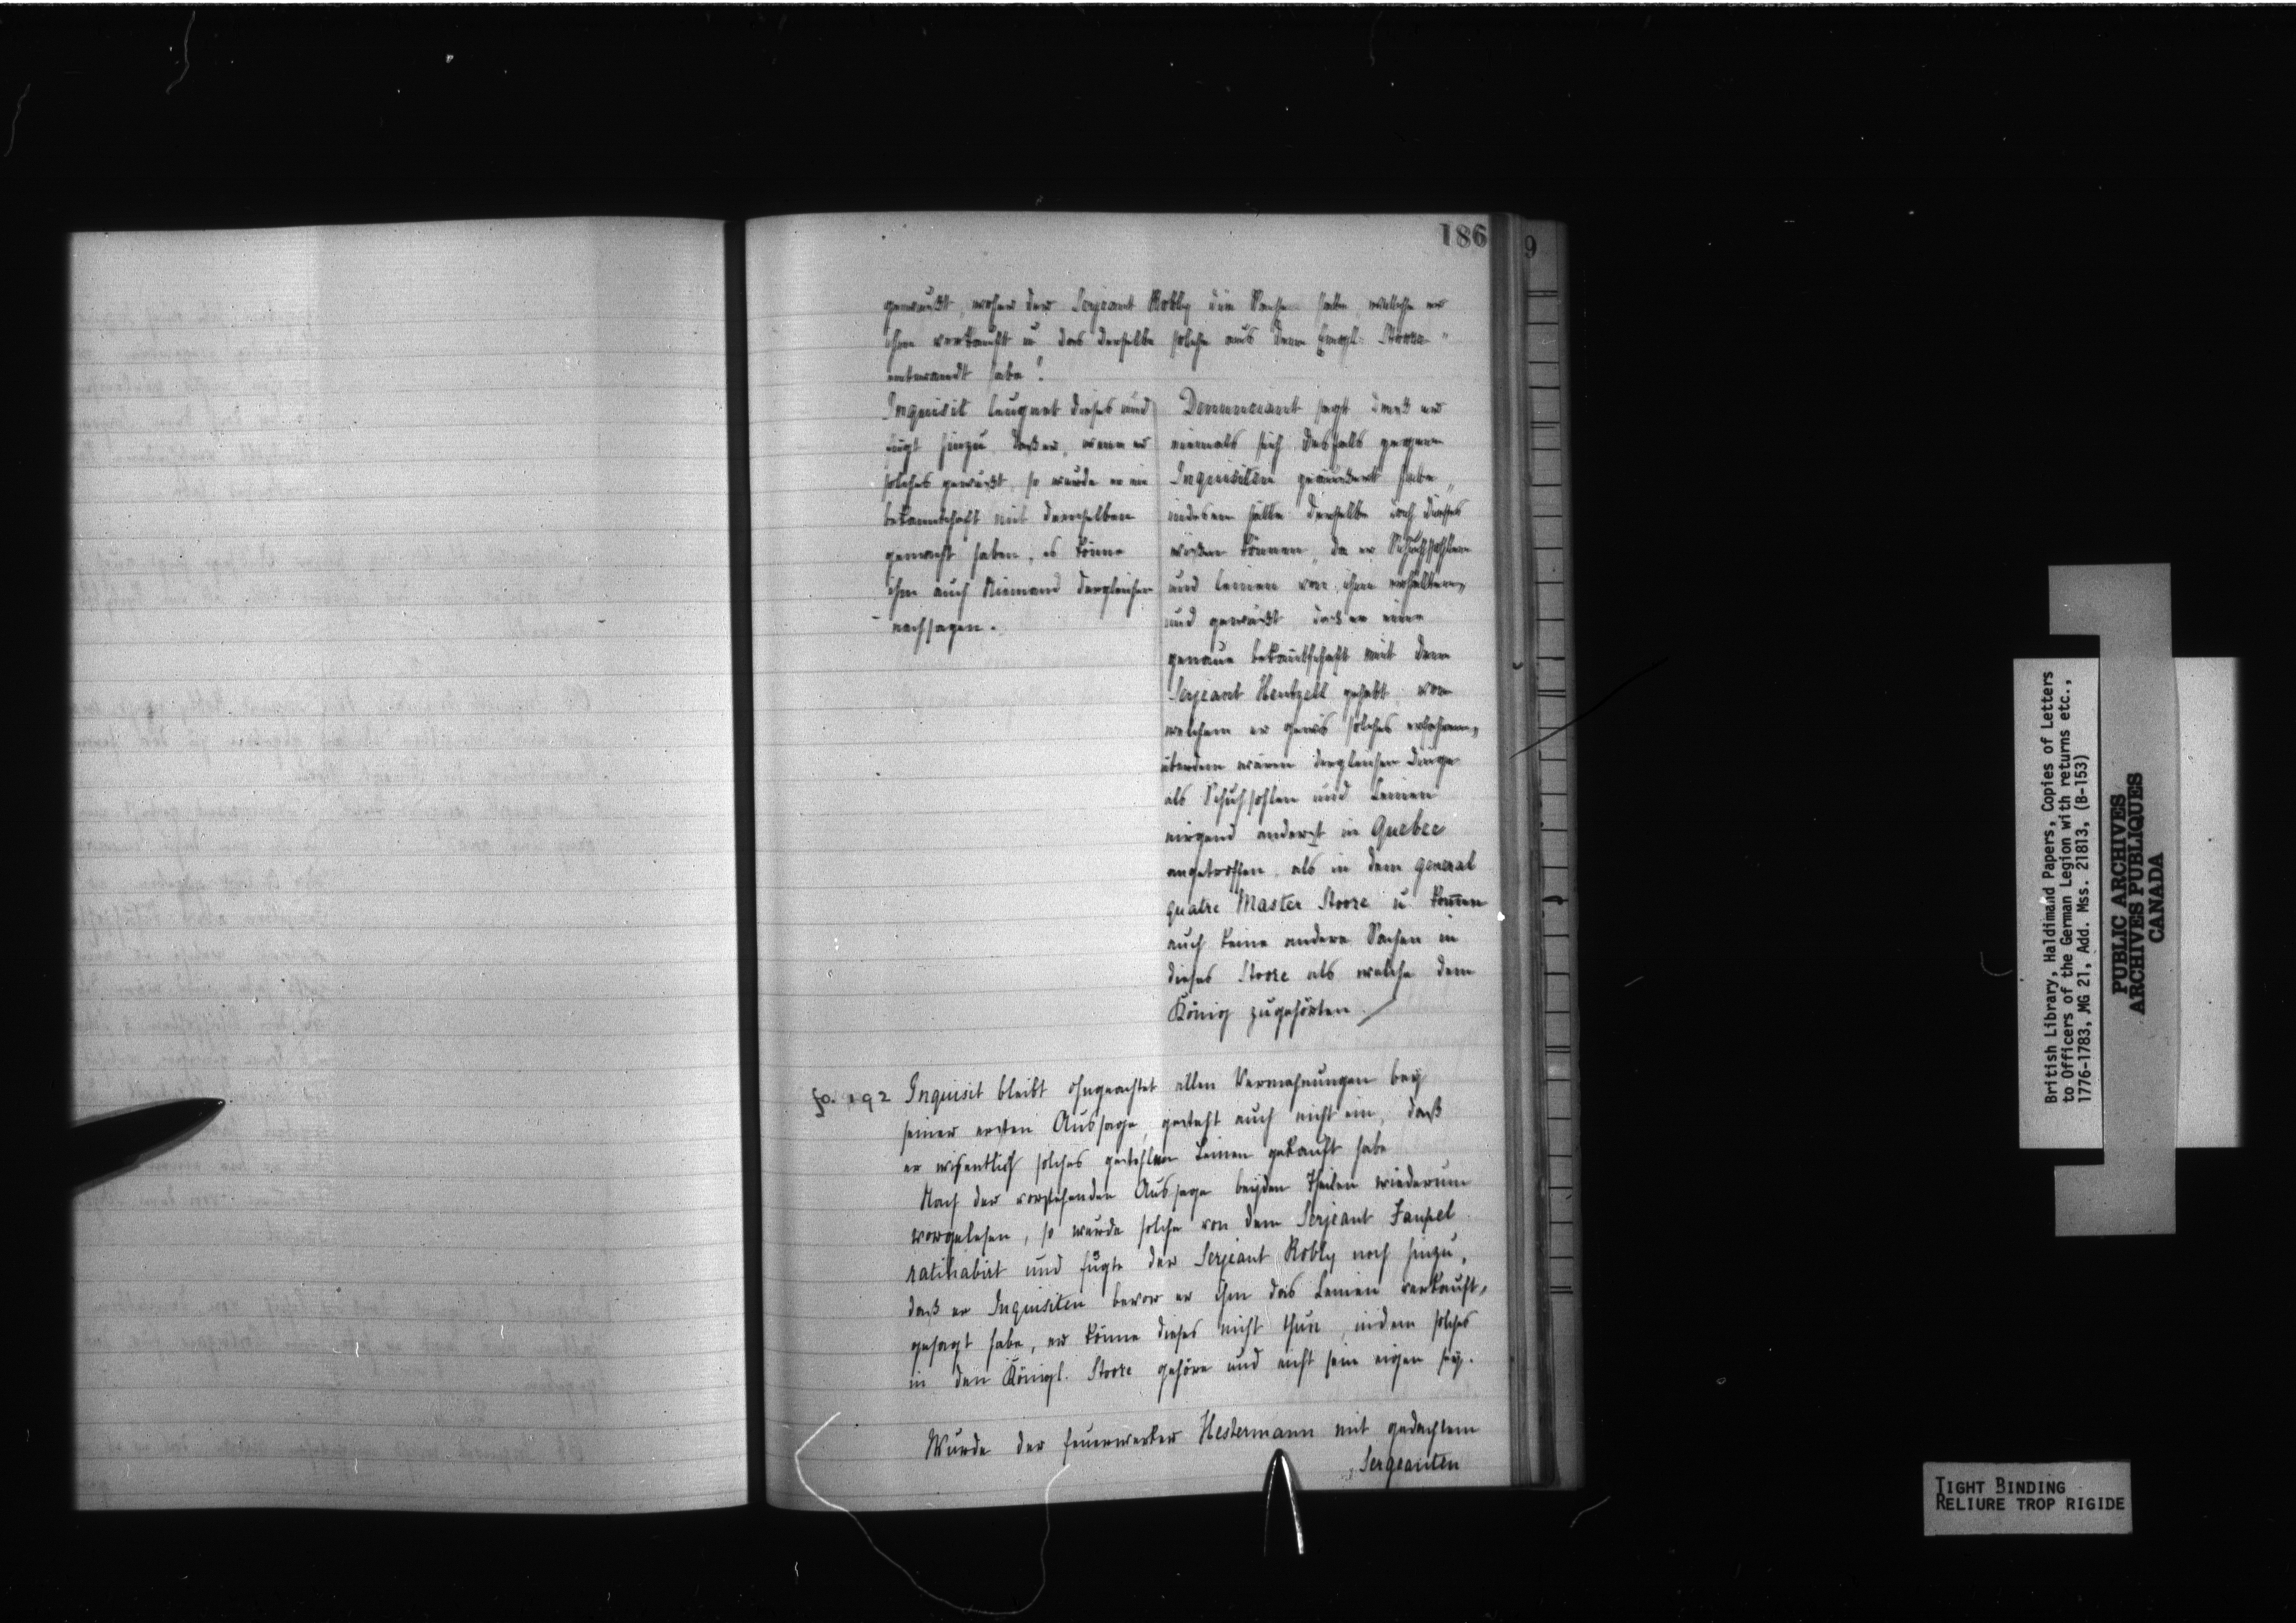 186
9
gewußt, woher der Serjeant Robby die Sache habe, welche er
ihm verkauft u das derselbe solche aus dem Engl. Stoore
entwandt habe!
Inquisit leugnet dieses und
fügt hinzu daß er, wenn er
solches gewußt, so wurde er nie
bekanntschaft mit demselben
gemacht haben, es könne
ihm auch Niemand dergleichen
nachsagen.
Denunciant sagt daß er
niemals sich desfals gegen
Inquisiten geäußert habe,
indessen hätte derselbe doch dieses
wißen können, da er Schuhsohlen
und Leinen von ihm erhalten,
und gewußt daß er eine
genaue bekantschaft mit dem
Serjeant Hentzell gehabt von
welchem er gewis solches erfahren,
überdem wären dergleichen Dinge
als Schuhsohlen und Leinen
nirgend anderst in Quebec
angetroffen, als in dem general
quatre Master Stoore u kommen
auch keine andere Sachen in
dieses Stoore als welche dem
König zugehörten
fo. 192 Inquisit bleibt ohngeachtet allen Vermahnungen bey
seiner ersten Aussage, gesteht auch nicht ein, daß
er wissentlich solches gestohlen Leinen gekauft habe
Nach der vorstehenden Aussage beyden Theilen wiederum
vorgelesen, so wurde solche von dem Serjeant Faupel
ratihabirt und fügte der Serjeant Robby noch hinzu,
daß er Inquisiten bevor er ihm das Leinen verkauft,
gesagt habe, er könne dieses nicht thun, indem solches
in den Königl. Stoore gehöre und nicht sein eigen sey.
Wurde der Feuerwerker Hestermann mit gedachtem
Sergeanten
British Library, Haldimand Papers, Copies of Letters
to Officers of the German Legion with returns etc.,
1776-1783, MG 21, Add. Mss. 21813, (B-153)
PUBLIC ARCHIVES
ARCHIVES PUBLIQUES
CANADA
TIGHT BINDING
RELIURE TROP RIGIDE